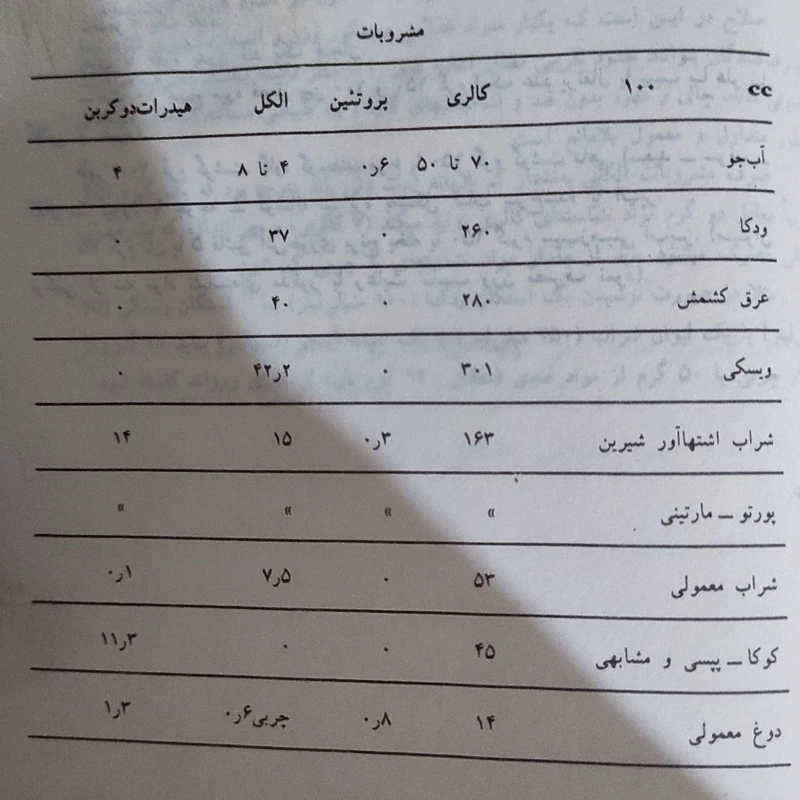 مشروبات
cc ۱۰۰ کالری پروتئین الکل هیدرات‌دوکربن
آب‌جو ۷۰ تا ۵۰ ۰٫۶ ۴ تا ۸ ۴
ودکا ۲۶۰ ۰ ۳۷ ۰
عرق کشمش ۲۸۰ ۰ ۴۰ ۰
ویسکی ۳۰۱ ۰ ۴۲٫۲ ۰
شراب اشتهاآور شیرین ۱۶۳ ۰٫۳ ۱۵ ۱۴
پورتو ــ مارتینی » » » »
شراب معمولی ۵۳ ۰ ۷٫۵ ۰٫۱
کوکا ــ پپسی و مشابهی ۴۵ ۰ ۰ ۱۱٫۳
دوغ معمولی ۱۴ ۰٫۸ چربی۰٫۶ ۱٫۳